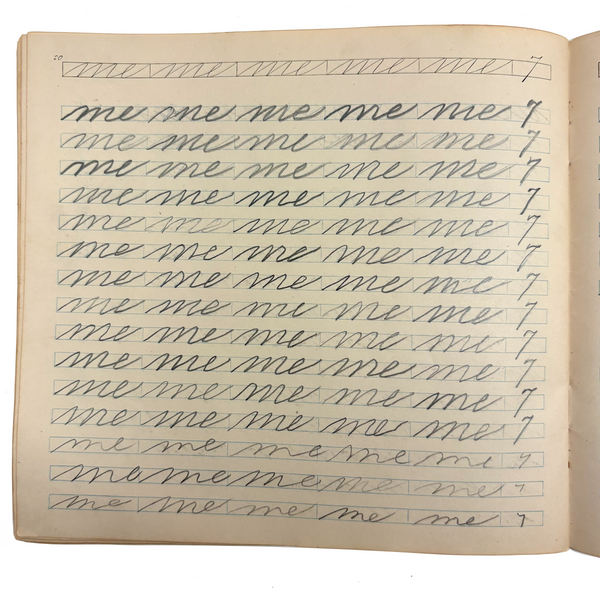 me me me me me 7
me me me me me 7
me me me me me 7
me me me me me 7
me me me me me 7
me me me me me 7
me me me me me 7
me me me me me 7
me me me me me 7
me me me me me 7
me me me me me 7
me me me me me 7
me me me me me 7
me me me me me 7
me me me me me 7
me me me me me 7